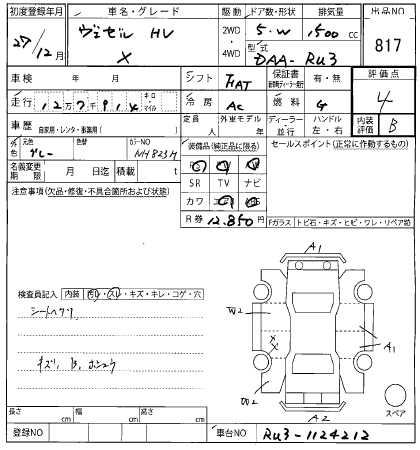 初度登録年月 車名・グレード 駆動 ドア数・形状 排気量 出品NO
27/12月 ヴェゼル HV 2WD 5.W 1500 cc 817
X 4WD 型式 DAA-RU3
車検 年 月 シフト FAT 保証書 有・無 評価点
走行 キロ・マイル 冷房 AC 燃料 G 4
車歴 自家用・レンタ・事業用( ) 定員 人 外車モデル 年 ディーラー・並行 ハンドル 左・右 内装評価 B
外色 元色 グレー 色替 カラーNO NH823M 装備品(純正品に限る) セールスポイント(正常に作動するもの)
名義変更期限 月 日迄 積載 t SR TV ナビ
注意事項(欠品・修復・不具合箇所および状態) カワ
R券 12,850円 Fガラス トビ石・キズ・ヒビ・ワレ・リペア跡
A1
検査員記入 内装 汚レ・スレ・キズ・キレ・コゲ・穴
W2
シートヘタリ
A1
キズ、B、
W2
スペア
A2
長さ cm 幅 cm 高さ cm
登録NO 車台NO RU3-1124212